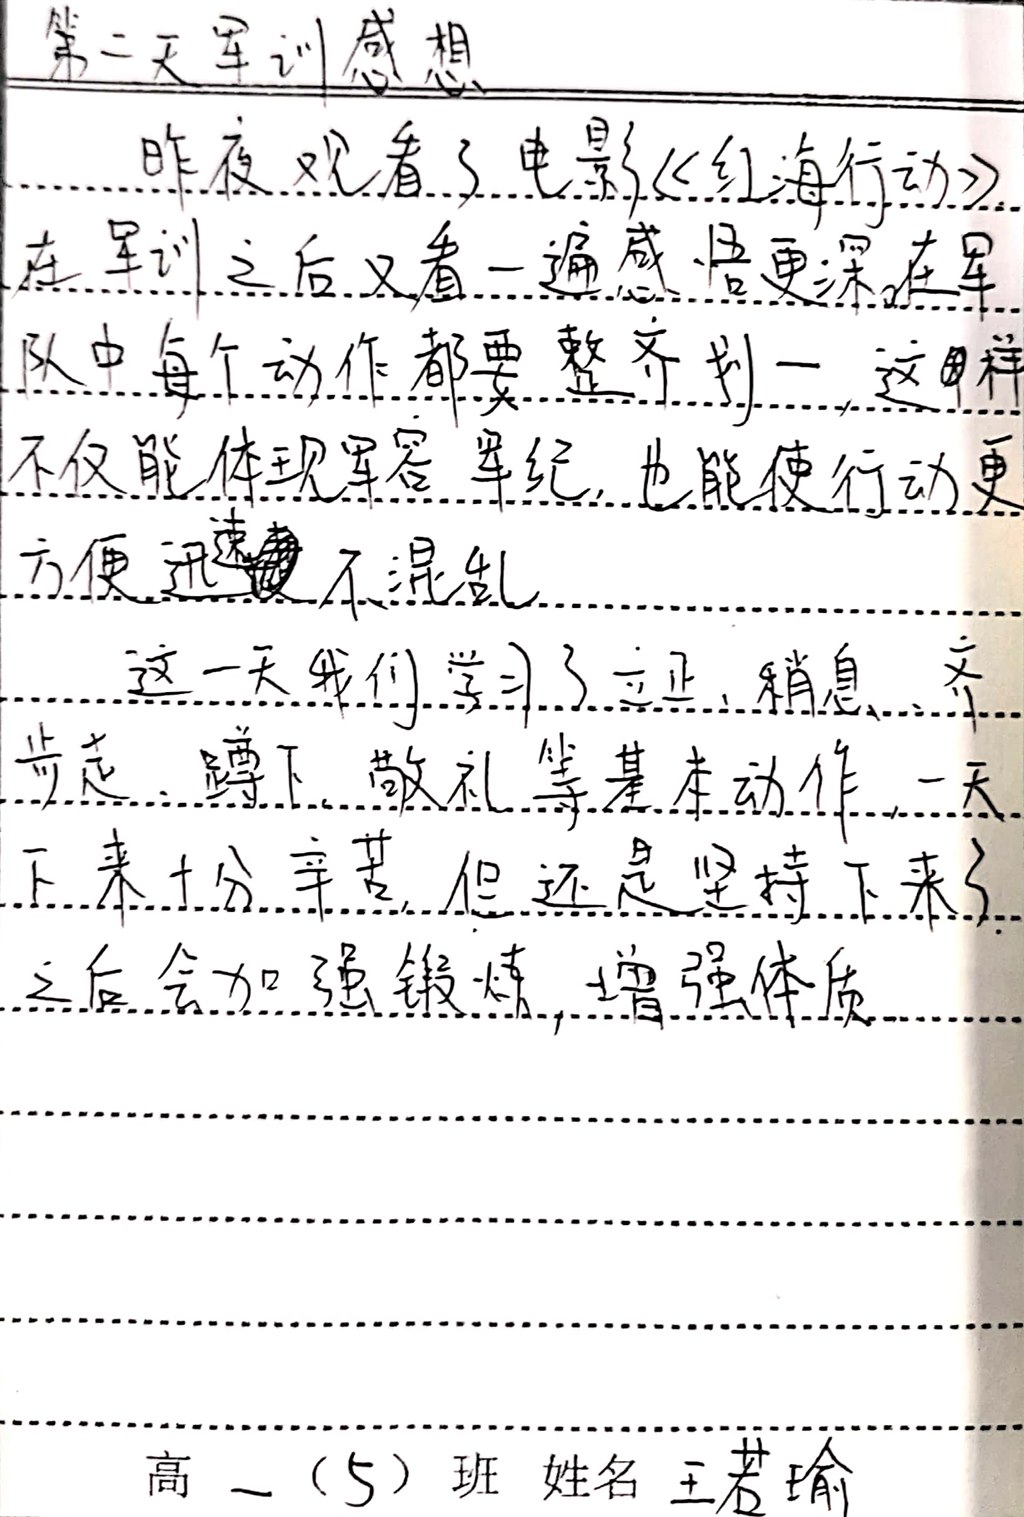 第二天军训感想
昨夜观看了电影《红海行动》
在军训之后又看一遍感悟更深。在军
队中每个动作都要整齐划一,这样
不仅能体现军容军纪,也能使行动更
方便迅速不混乱
这一天我们学习了立正、稍息、齐
步走、蹲下、敬礼等基本动作,一天
下来十分辛苦,但还是坚持下来了.
之后会加强锻炼,增强体质
高一(5)班 姓名 王若瑜